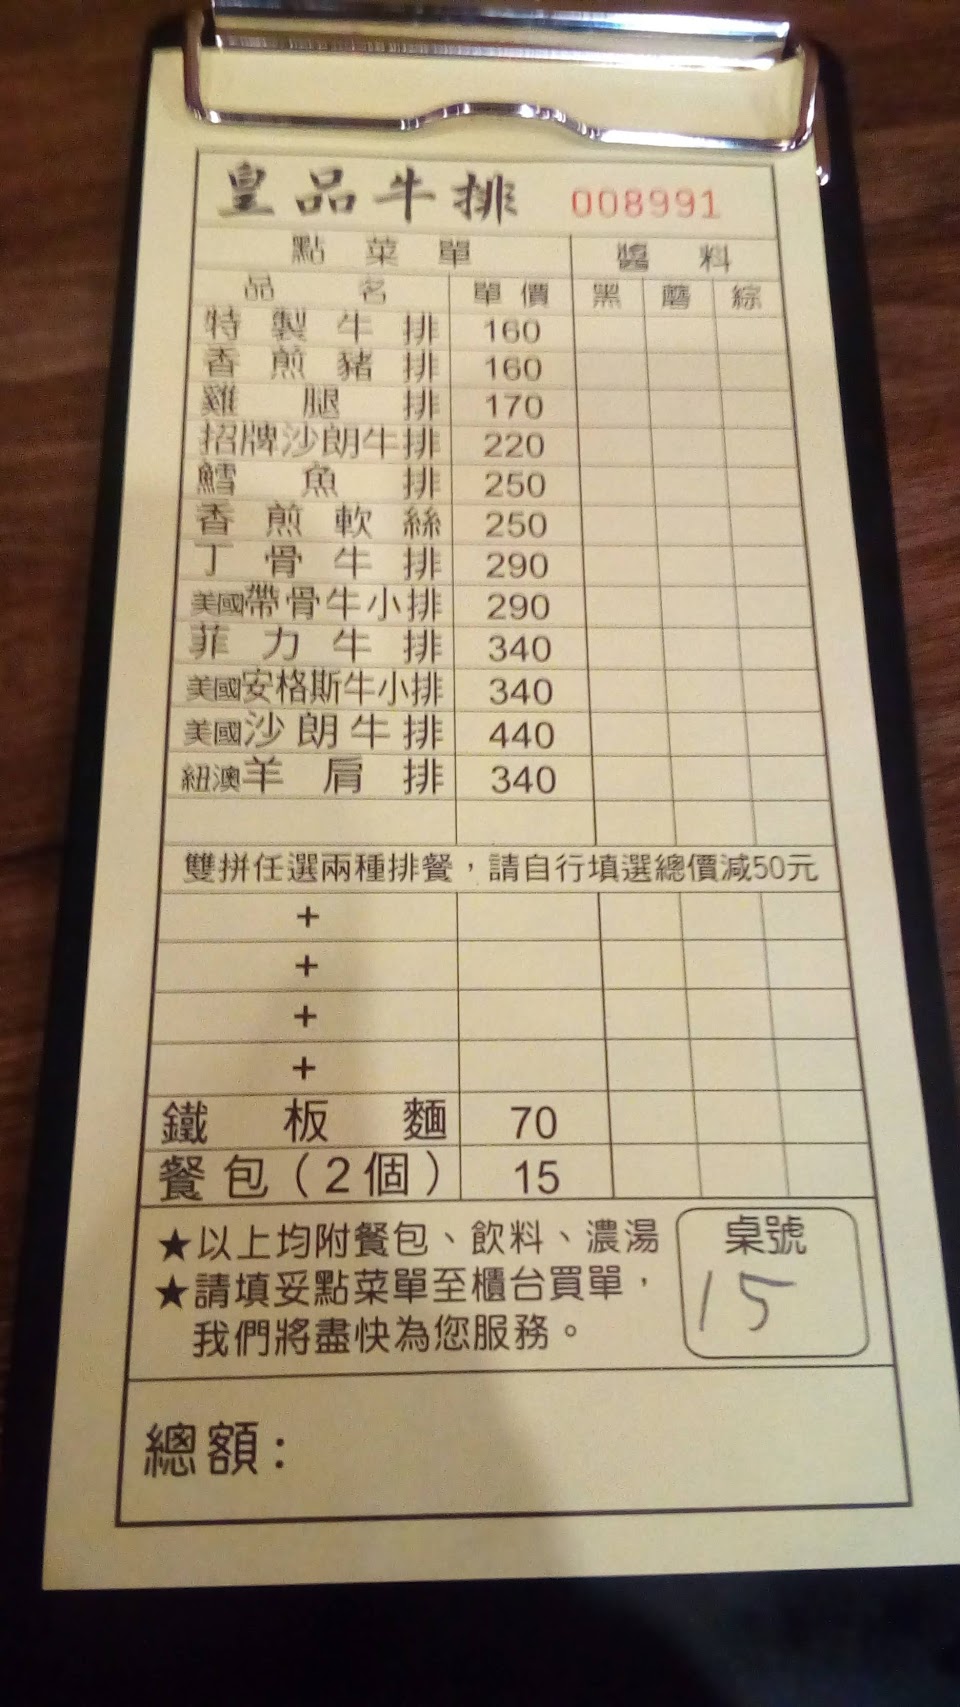 皇品牛排 008991
點菜單 醬料
品名 單價 黑 磨 綜
特製牛排 160
香煎豬排 160
雞腿排 170
招牌沙朗牛排 220
鱈魚排 250
香煎軟絲 250
丁骨牛排 290
美國帶骨牛小排 290
菲力牛排 340
美國安格斯牛小排 340
美國沙朗牛排 440
紐澳羊肩排 340
雙拼任選兩種排餐，請自行填選總價減50元
+
+
+
+
鐵板麵 70
餐包(2個) 15
★以上均附餐包、飲料、濃湯
★請填妥點菜單至櫃台買單，
我們將盡快為您服務。
桌號
15
總額: